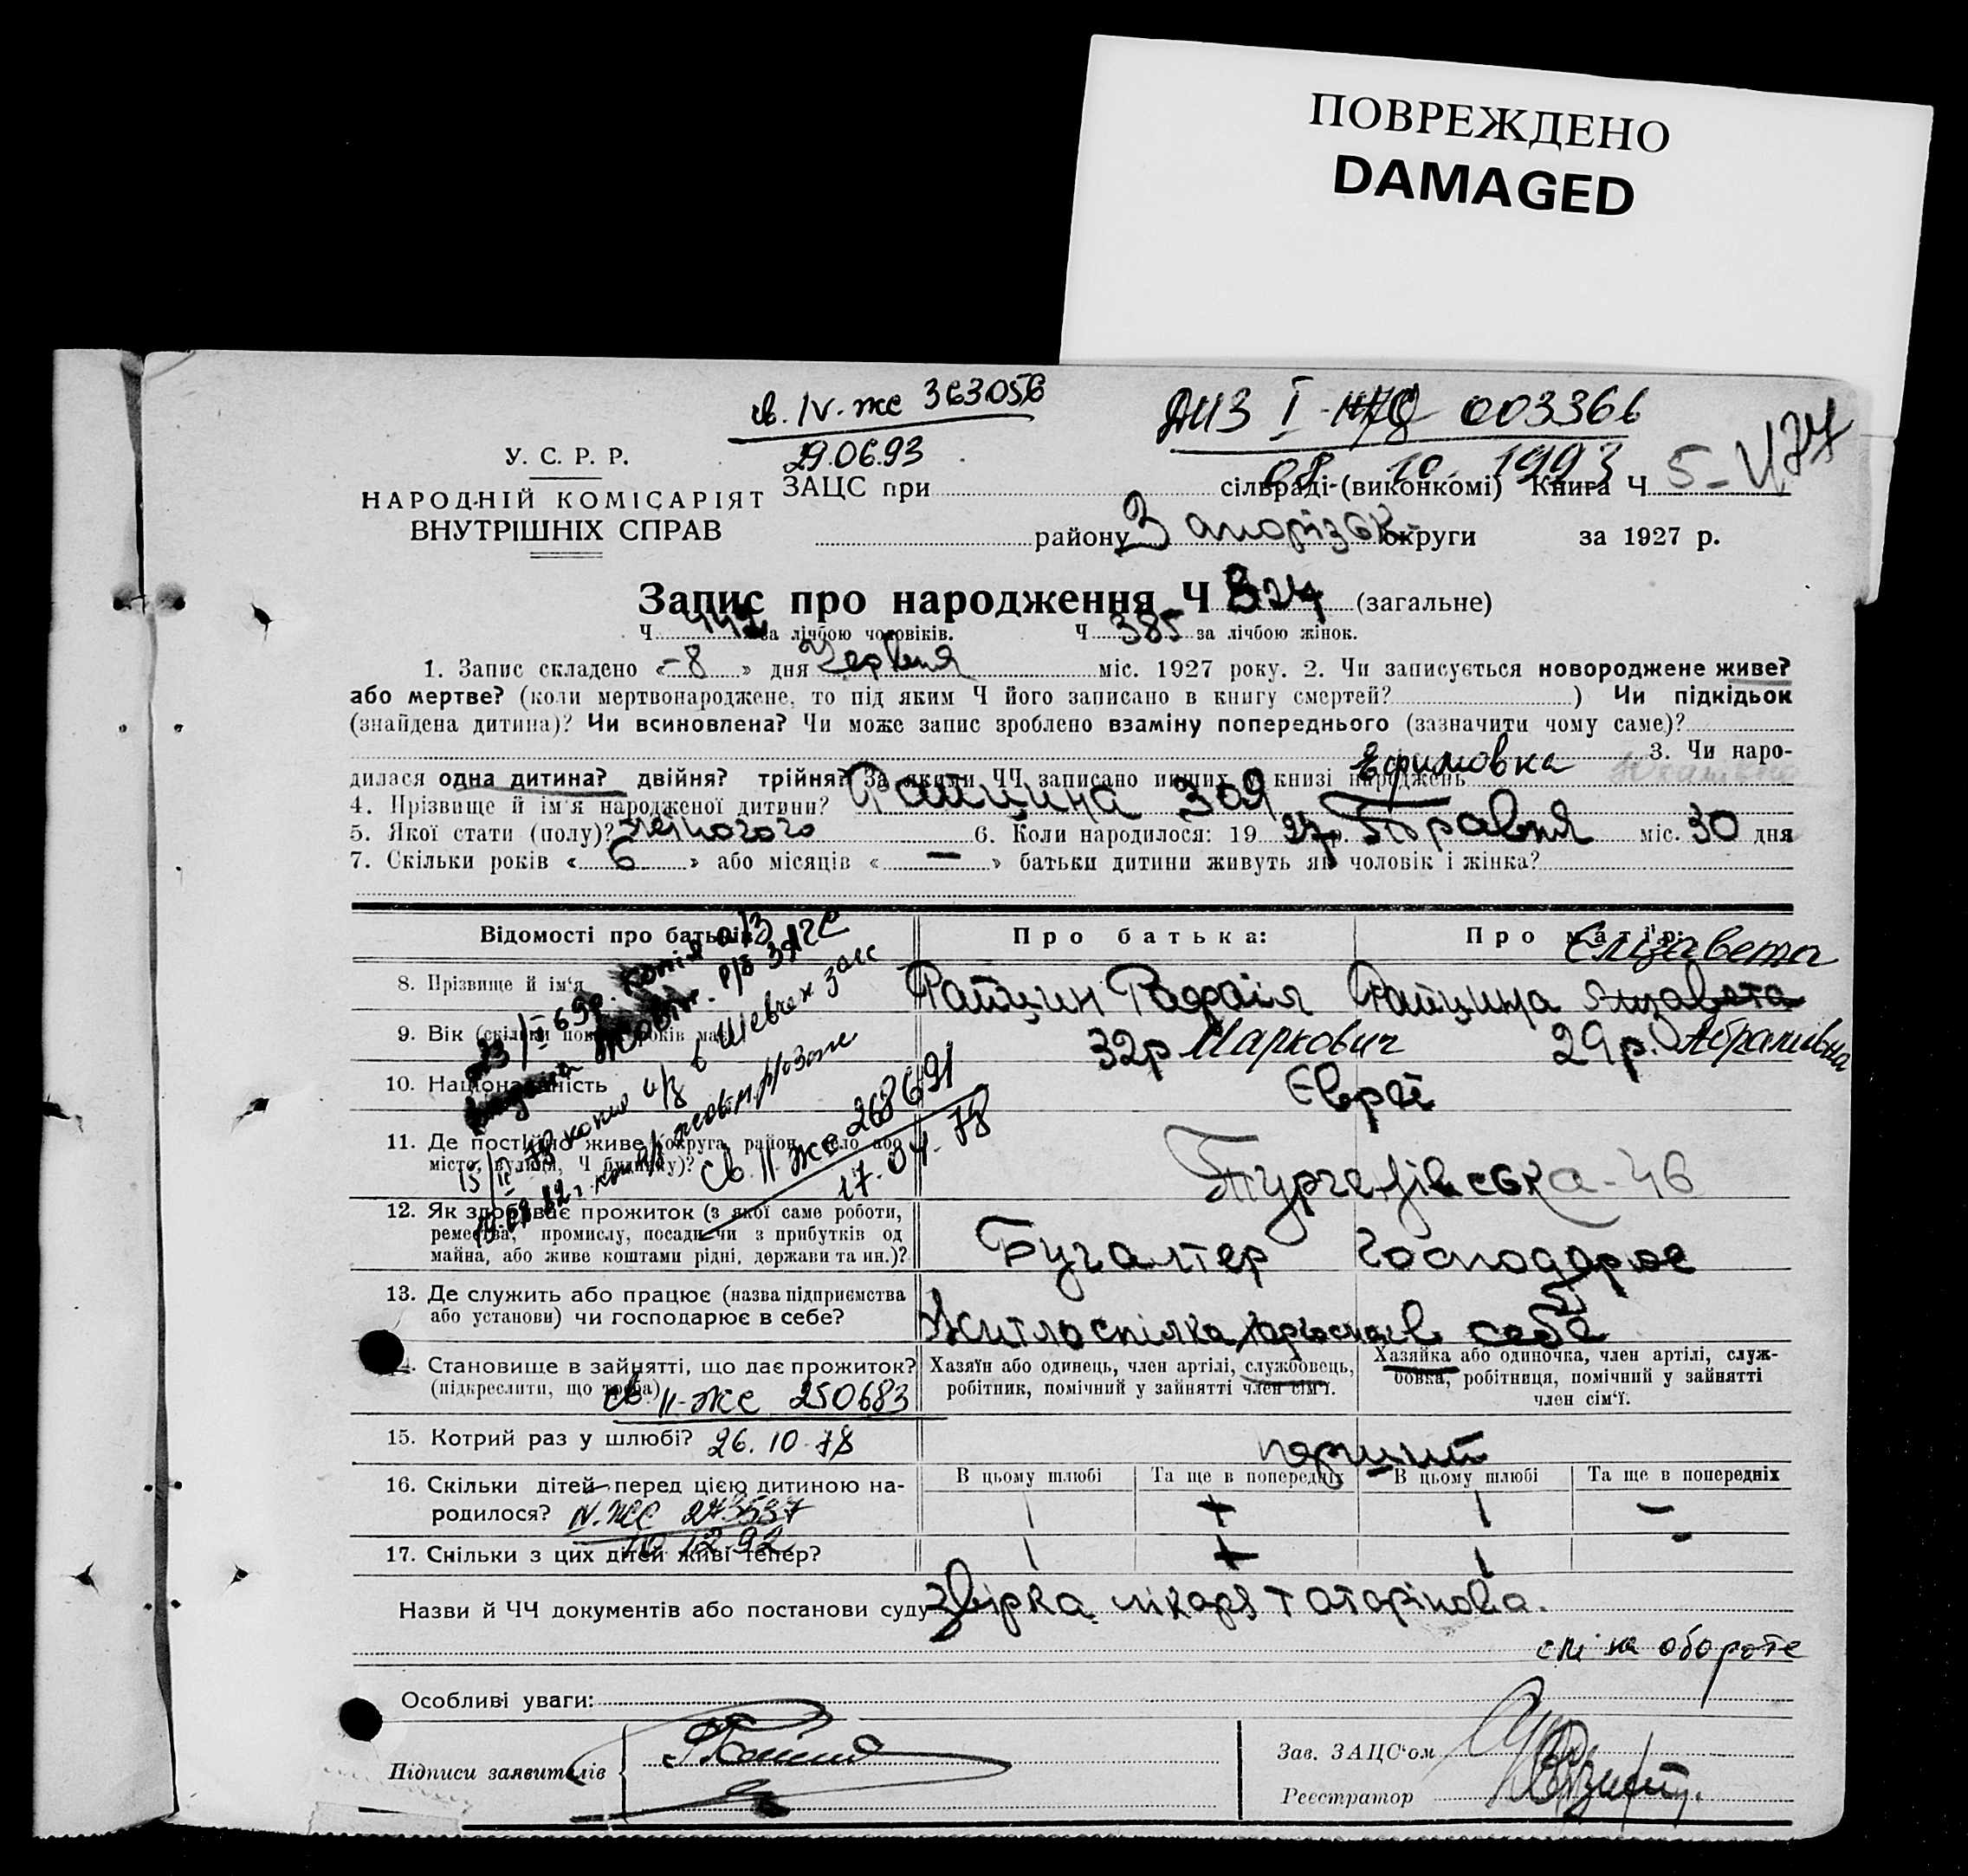 ПОВРЕЖДЕНО
DAMAGED
св. IV-жс 363056
29.06.93
I 003366
08 10. 1993
У. С. Р. Р.
НАРОДНІЙ КОМІСАРІЯТ
ВНУТРІШНІХ СПРАВ
ЗАЦС при сільраді-(виконкомі) Книга Ч 5
району Запорізьк округи за 1927 р.
Запис про народження Ч 824 (загальне)
Ч за лічбою чоловіків. Ч 385 за лічбою жінок.
1. Запис складено «-8» дня Червня міс. 1927 року. 2. Чи записується новороджене живе?
або мертве? (коли мертвонароджене, то під яким Ч його записано в книгу смертей? ) Чи підкідьок
(знайдена дитина)? Чи всиновлена? Чи може запис зроблено взаміну попереднього (зазначити чому саме)?
3. Чи наро-
дилася одна дитина? двійня? трійня? За якими ЧЧ записано инших у книзі народжень
Ефимовна
4. Прізвище й ім'я народженої дитини? Райцина Зоя
5. Якої стати (полу)? жіночого 6. Коли народилося: 1927 р. Травня міс. 30 дня
7. Скільки років «6» або місяців «—» батьки дитини живуть як чоловік і жінка?
Відомості про батьків Про батька: Про матір:
Єлізавета
8. Прізвище й ім'я Райцин Рафаіл Райцина
9. Вік 32р Маркович 29р. Абрамівна
10. Національність Єврей
11. Де постійно живе (округа, район, село або
місто, вулиця, Ч будинку)? Тургенівська-46
св. II-жс 268691
17-04-78
12. Як здобуває прожиток (з якої саме роботи,
ремества, промислу, посади чи з прибутків од
майна, або живе коштами рідні, держави та ин.)? Бугалтер Господарює
13. Де служить або працює (назва підприємства
або установи) чи господарює в себе? Житлоспілка в себе
14. Становище в зайнятті, що дає прожиток?
(підкреслити, що треба)
Хазяїн або одинець, член артілі, службовець,
робітник, помічний у зайнятті член сім'ї.
Хазяйка або одиночка, член артілі, служ-
бовка, робітниця, помічний у зайнятті
член сім'ї.
св II-жс 250683
15. Котрий раз у шлюбі? 26.10.78 перший
16. Скільки дітей перед цією дитиною на-
родилося?
В цьому шлюбі Та ще в попередніх В цьому шлюбі Та ще в попередніх
IV-жс 273537
10 12 92
17. Скільки з цих дітей живі тепер?
Назви й ЧЧ документів або постанови суду
лікаря Татарінова.
на обороте
Особливі уваги:
Підписи заявителів
Зав. ЗАЦС'ом
Реєстратор